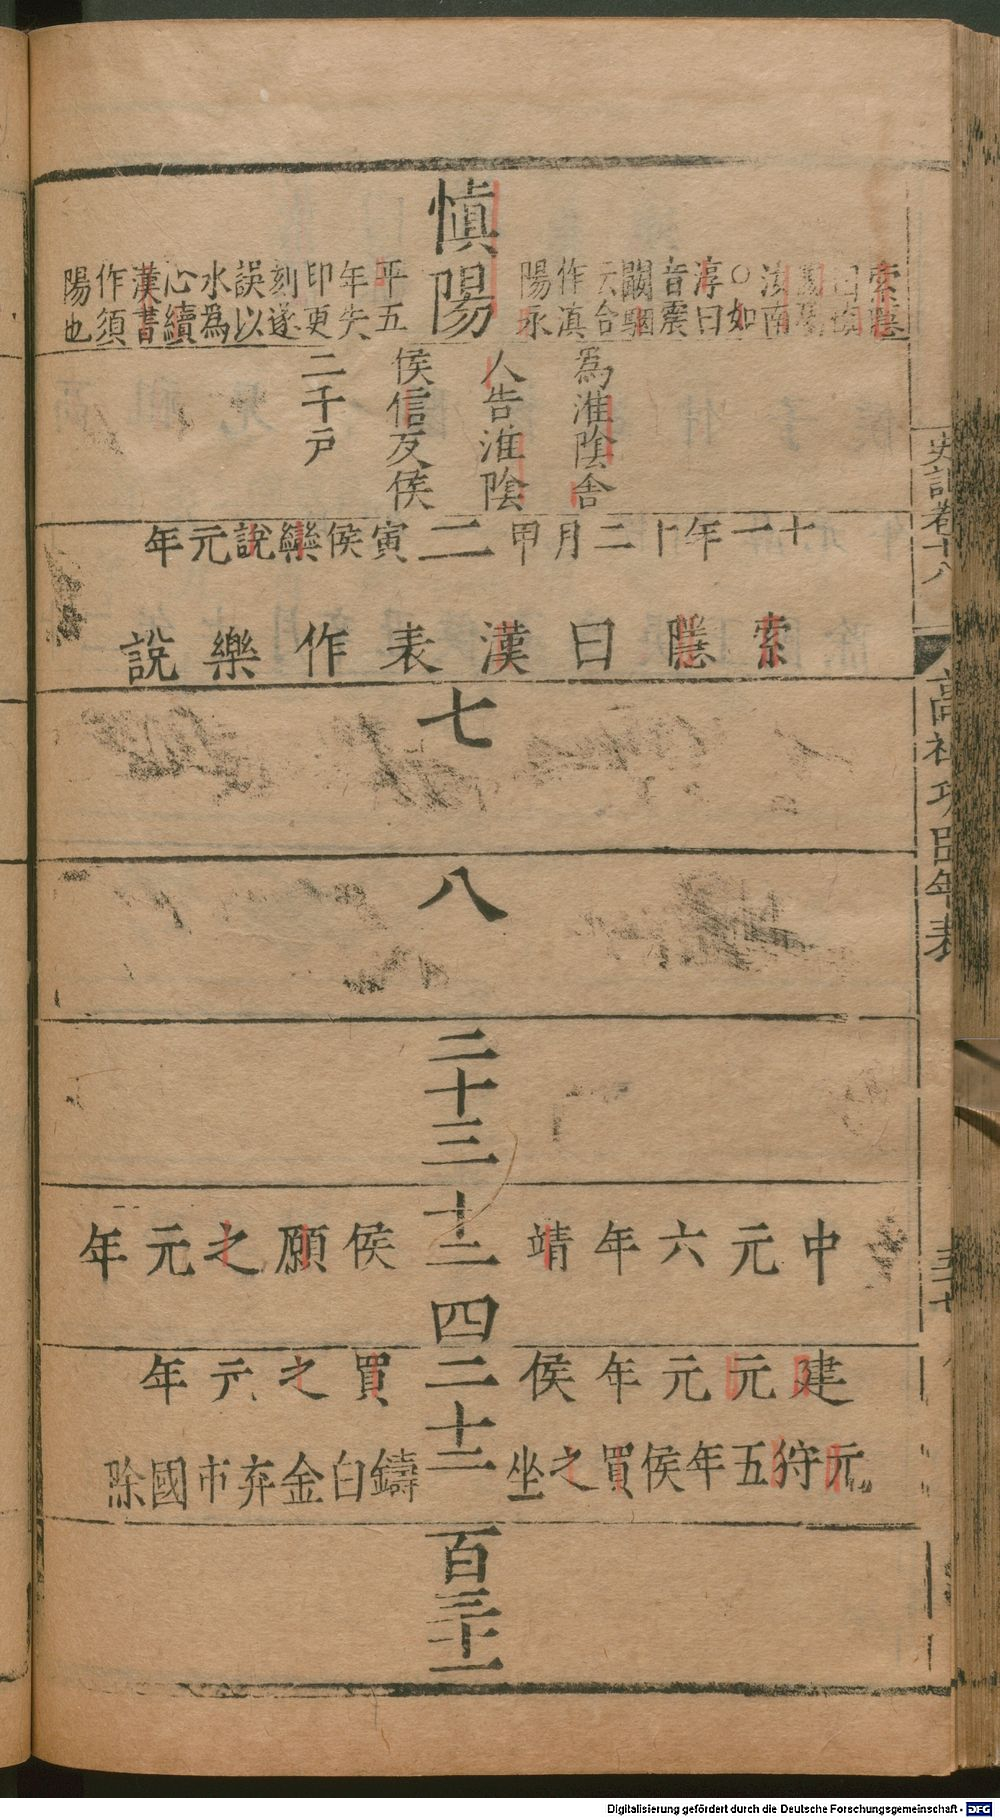 史記卷十八
高祖功臣年表
愼陽
索隱曰
汝南○如淳曰音震闞駰云合作滇陽永
平五年失印更刻遂誤以水為心續漢書作須陽也
為淮陰舍
人告淮陰
侯信反侯
二千戶
二
十一年十二月甲
寅侯欒說元年
索隱曰漢表作樂說
七
八
二十三
十二
四
中元六年靖
侯願之元年
二十二
建元元年侯
買之元年
元狩五年侯買之坐
鑄白金弃市國除
百三十一
Digitalisierung gefördert durch die Deutsche Forschungsgemeinschaft - DFG